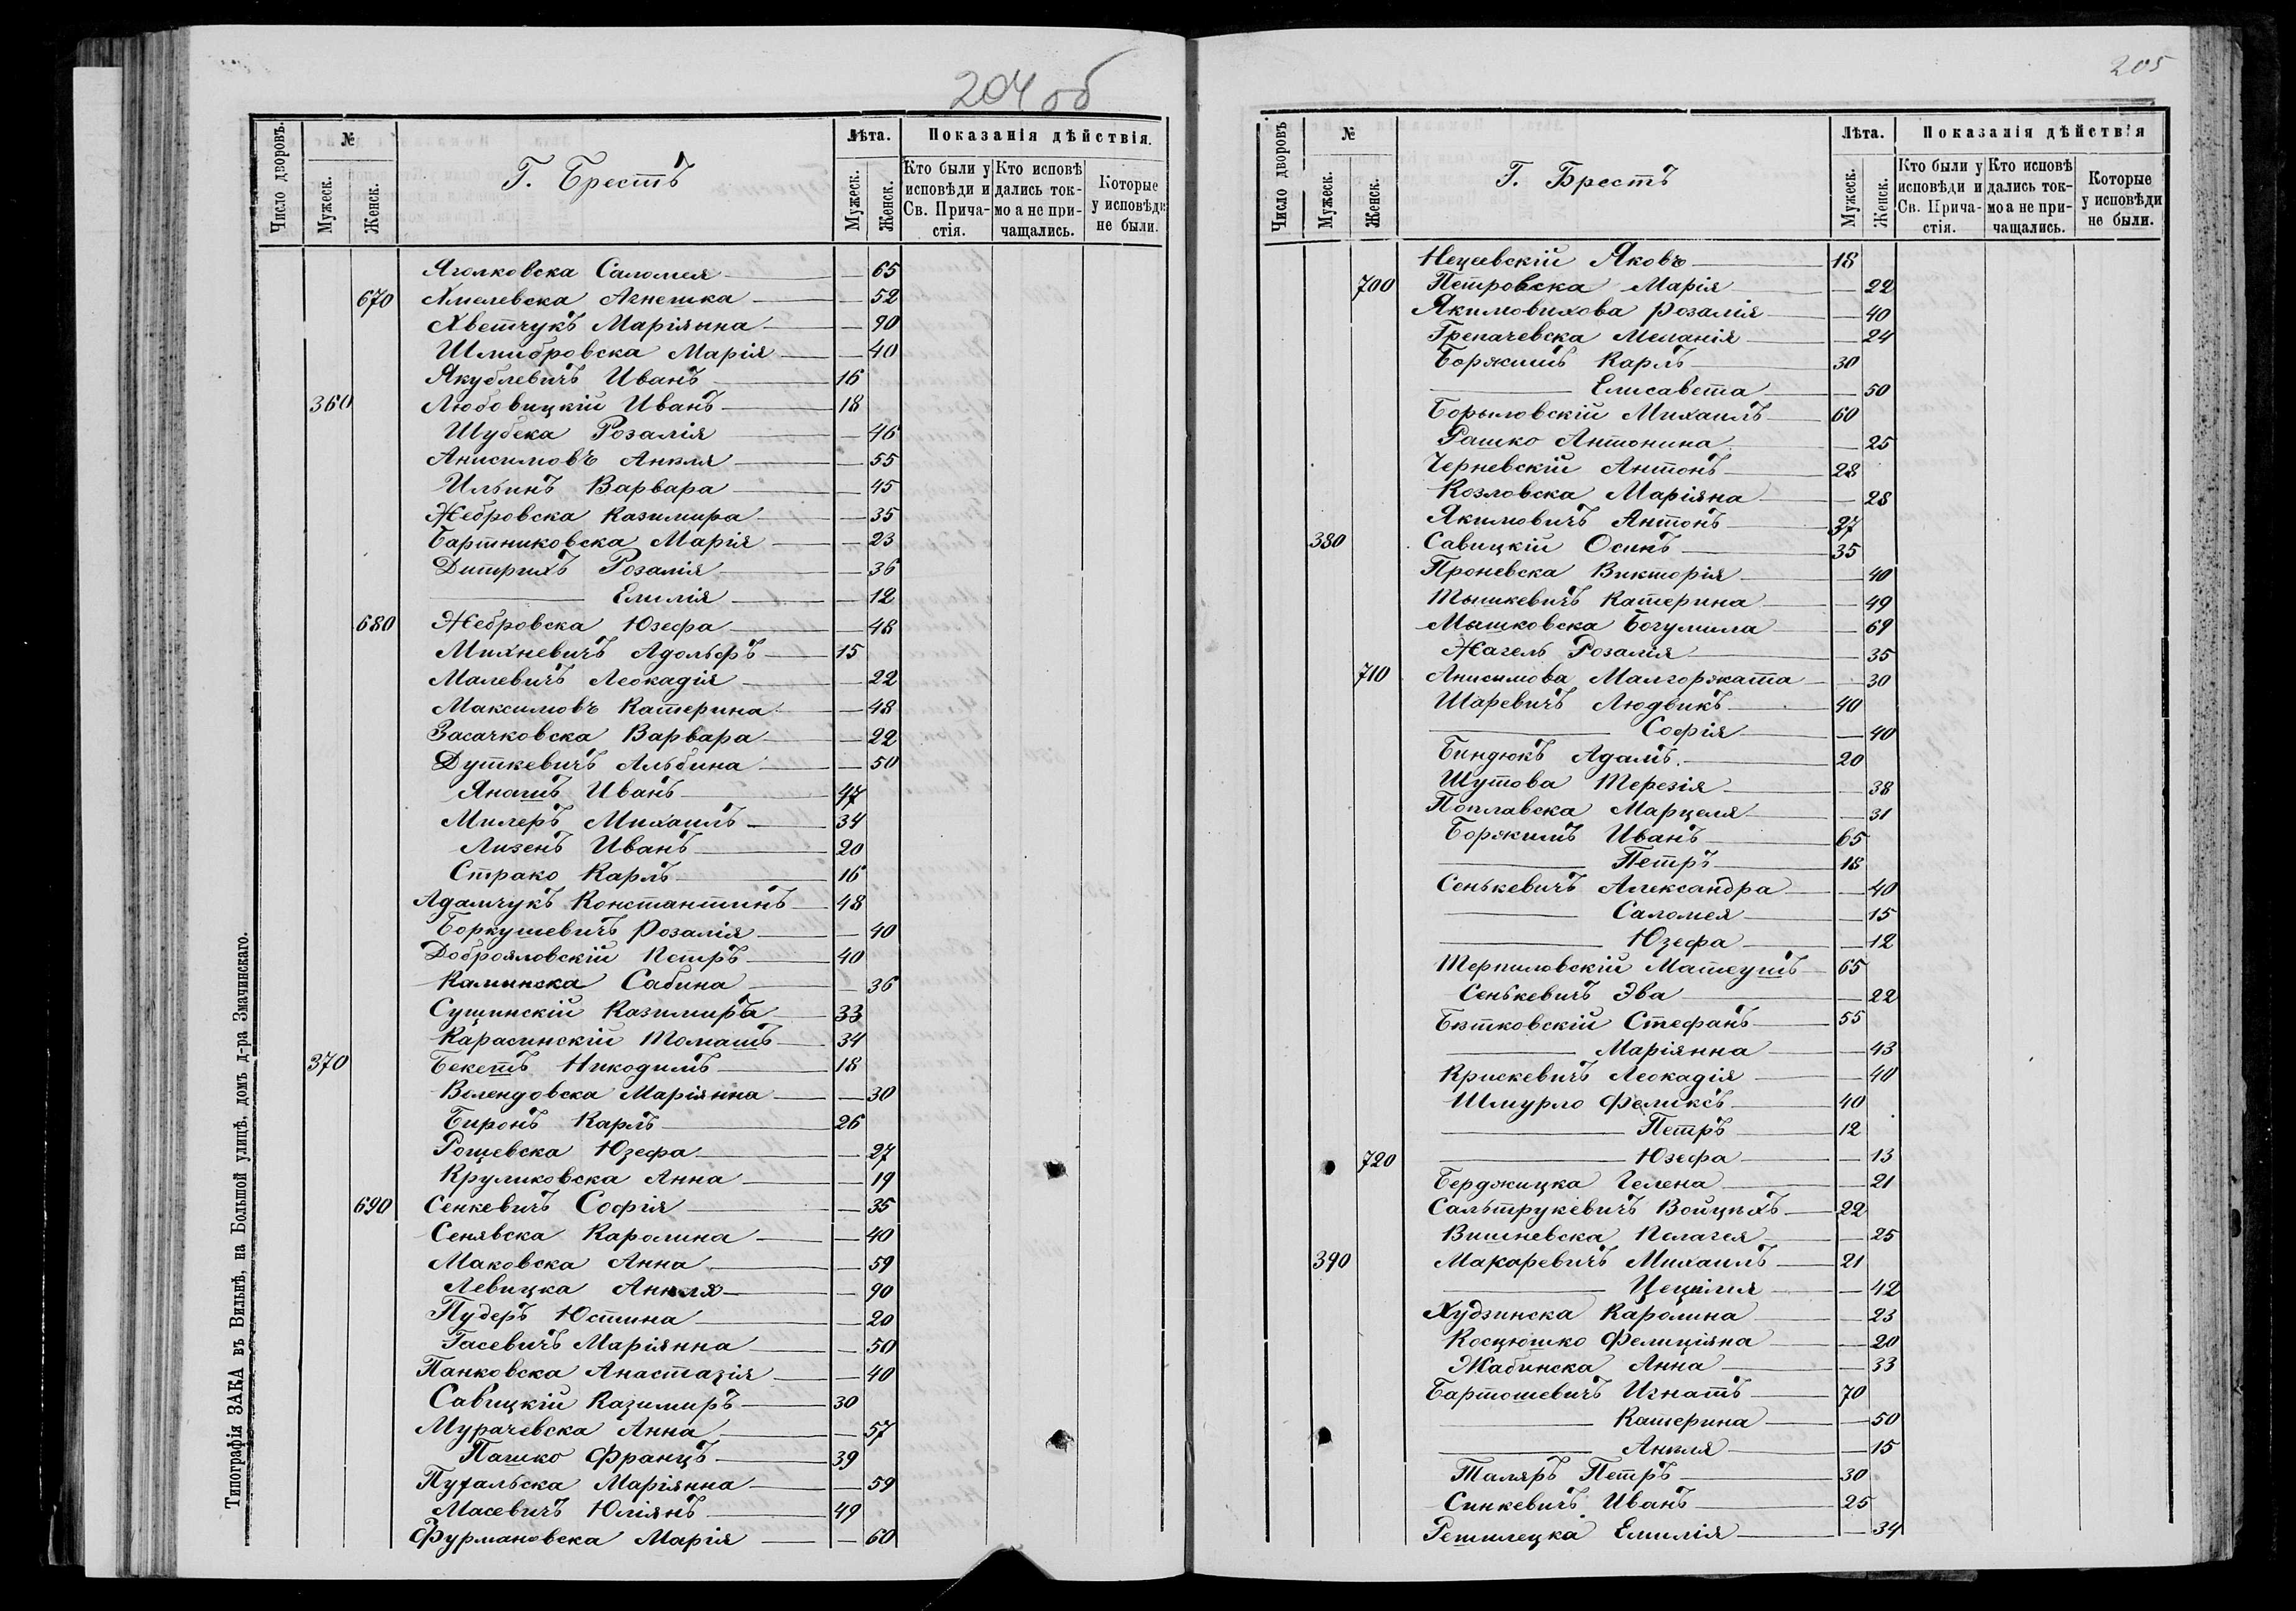 204 об
Число дворовъ.
№
Мужеск.
Женск.
Г. Брестъ
Лѣта.
Мужеск.
Женск.
Показанія дѣйствія.
Кто были у исповѣди и Св. Прича-стія.
Кто исповѣ дались ток-мо а не при-чащались.
Которые у исповѣди не были.
Яголковска Саломея — 65
670 Хмелевска Агнешка — 52
Хветчукъ Маріянна — 90
Шмибровска Марія — 40
Якублевичъ Иванъ 16
360 Любовицкій Иванъ 18
Шубска Розалія — 46
Анисимовъ Анеля — 55
Ильинъ Варвара — 45
Жебровска Казимира — 35
Бартниковска Марія — 23
Дитрихъ Розалія — 36
— Емилія — 12
680 Жебровска Юзефа — 48
Михневичъ Адольфъ 15
Малевичъ Леокадія — 22
Максимовъ Катерина — 48
Засачковска Варвара — 22
Дуткевичъ Альбина — 50
Яношъ Иванъ 47
Милеръ Михаилъ 34
Лизенъ Иванъ 20
Страко Карлъ 16
Адамчукъ Константинъ 48
Боркушевичъ Розалія — 40
Доброяловскій Петръ 40
Калинска Сабина — 36
Сущинскій Казимиръ 33
Карасинскій Томашъ 34
370 Бекетъ Никодимъ 18
Велендовска Маріянна — 30
Биронъ Карлъ 26
Рощевска Юзефа — 27
Круликовска Анна — 19
690 Сенкевичъ Софія — 35
Сенявска Каролина — 40
Маковска Анна — 59
Левицка Анеля — 90
Пудеръ Юстина — 20
Гасевичъ Маріянна — 50
Панковска Анастазія — 40
Савицкій Казимиръ 30
Мурачевска Анна — 57
Пашко Францъ 39
Пухальска Маріянна — 59
Масевичъ Юліянъ 49
Фурмановска Марія — 60
Типографія ЗАКА въ Вильнѣ, на Большой улицѣ, домъ д-ра Змачинскаго.
205
Число дворовъ
№
Мужеск.
Женск.
Г. Брестъ
Лѣта.
Мужеск.
Женск.
Показанія дѣйствія
Кто были у исповѣди и Св. Прича-стія.
Кто исповѣ дались ток-мо а не при-чащались.
Которые у исповѣди не были.
Нецевскій Яковъ 18
700 Петровска Марія — 22
Якимовихова Розалія — 40
Грепачевска Меланія — 24
Боржимъ Карлъ 30
— Елисавета — 50
Борыловскій Михаилъ 60
Рашко Антонина — 25
Черневскій Антонъ 28
Козловска Маріяна — 28
Якимовичъ Антонъ 37
380 Савицкій Осипъ 35
Проневска Викторія — 40
Тышкевичъ Катерина — 49
Мышковска Богумила — 69
Жагель Розалія — 35
710 Анисимова Малгоржата — 30
Шаревичъ Людвикъ 40
— Софія — 40
Биндюкъ Адамъ 20
Шутова Терезія — 38
Поплавска Марцеля — 31
Боржимъ Иванъ 65
— Петръ 18
Сенькевичъ Александра — 40
— Саломея — 15
— Юзефа — 12
Терпиловскій Матеушъ 65
Сенькевичъ Эва — 22
Бэтковскій Стефанъ 55
— Маріянна — 43
Крискевичъ Леокадія — 40
Шмурло Феликсъ 40
— Петръ 12
720 — Юзефа — 13
Берджицка Гелена — 21
Сальтрукевичъ Войцѣхъ 22
Вишневска Пелагея — 25
390 Макаревичъ Михаилъ 21
— Цецилія — 42
Худзинска Каролина — 23
Косцюшко Фелиціяна — 20
Жабинска Анна — 33
Бартошевичъ Игнатъ 70
— Катерина — 50
— Анеля — 15
Таляръ Петръ 30
Синкевичъ Иванъ 25
Решилецка Емилія — 34